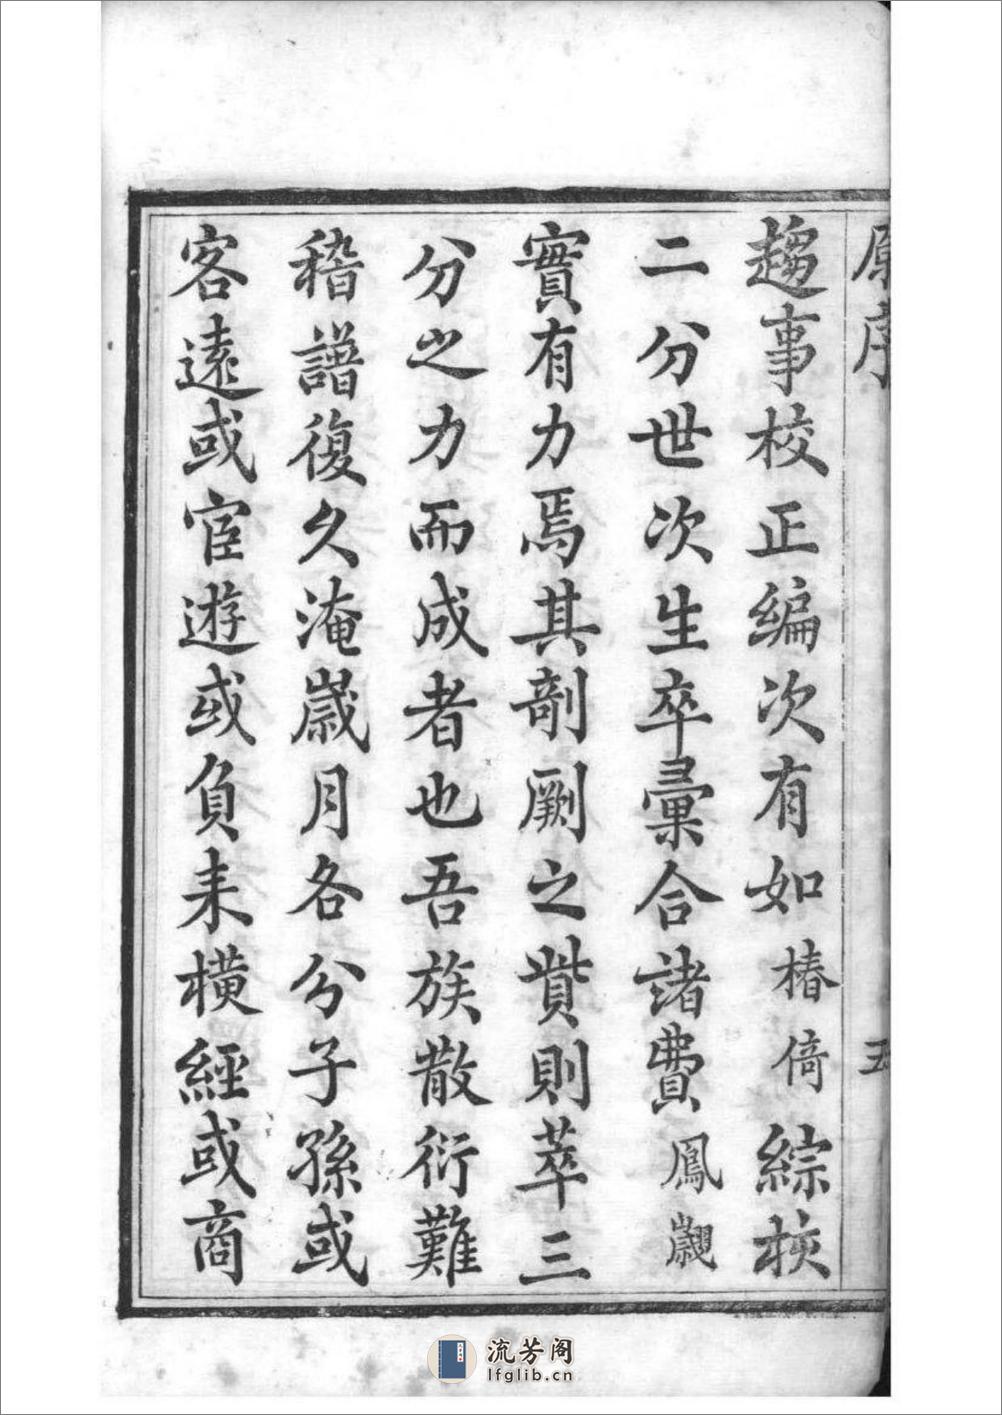 原序
五
趨事校正編次有如椿倚綜核
二分世次生卒彙合諸費鳳翽
實有力焉其剞劂之貲則萃三
分之力而成者也吾族散衍難
稽譜復久淹歲月各分子孫或
客遠或宦遊或負耒橫經或商
流芳阁
lfglib.cn